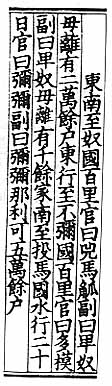 東南至奴國百里官曰兕馬觚副曰卑奴
母離有二萬餘户東行至不彌國百里官曰多模
副曰卑奴母離有千餘家南至投馬國水行二十
日官曰彌彌副曰彌彌那利可五萬餘户